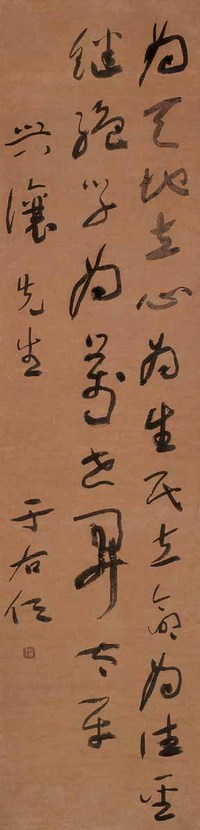 為天地立心為生民立命為往聖
繼絕學為萬世開太平
興瀼先生 于右任